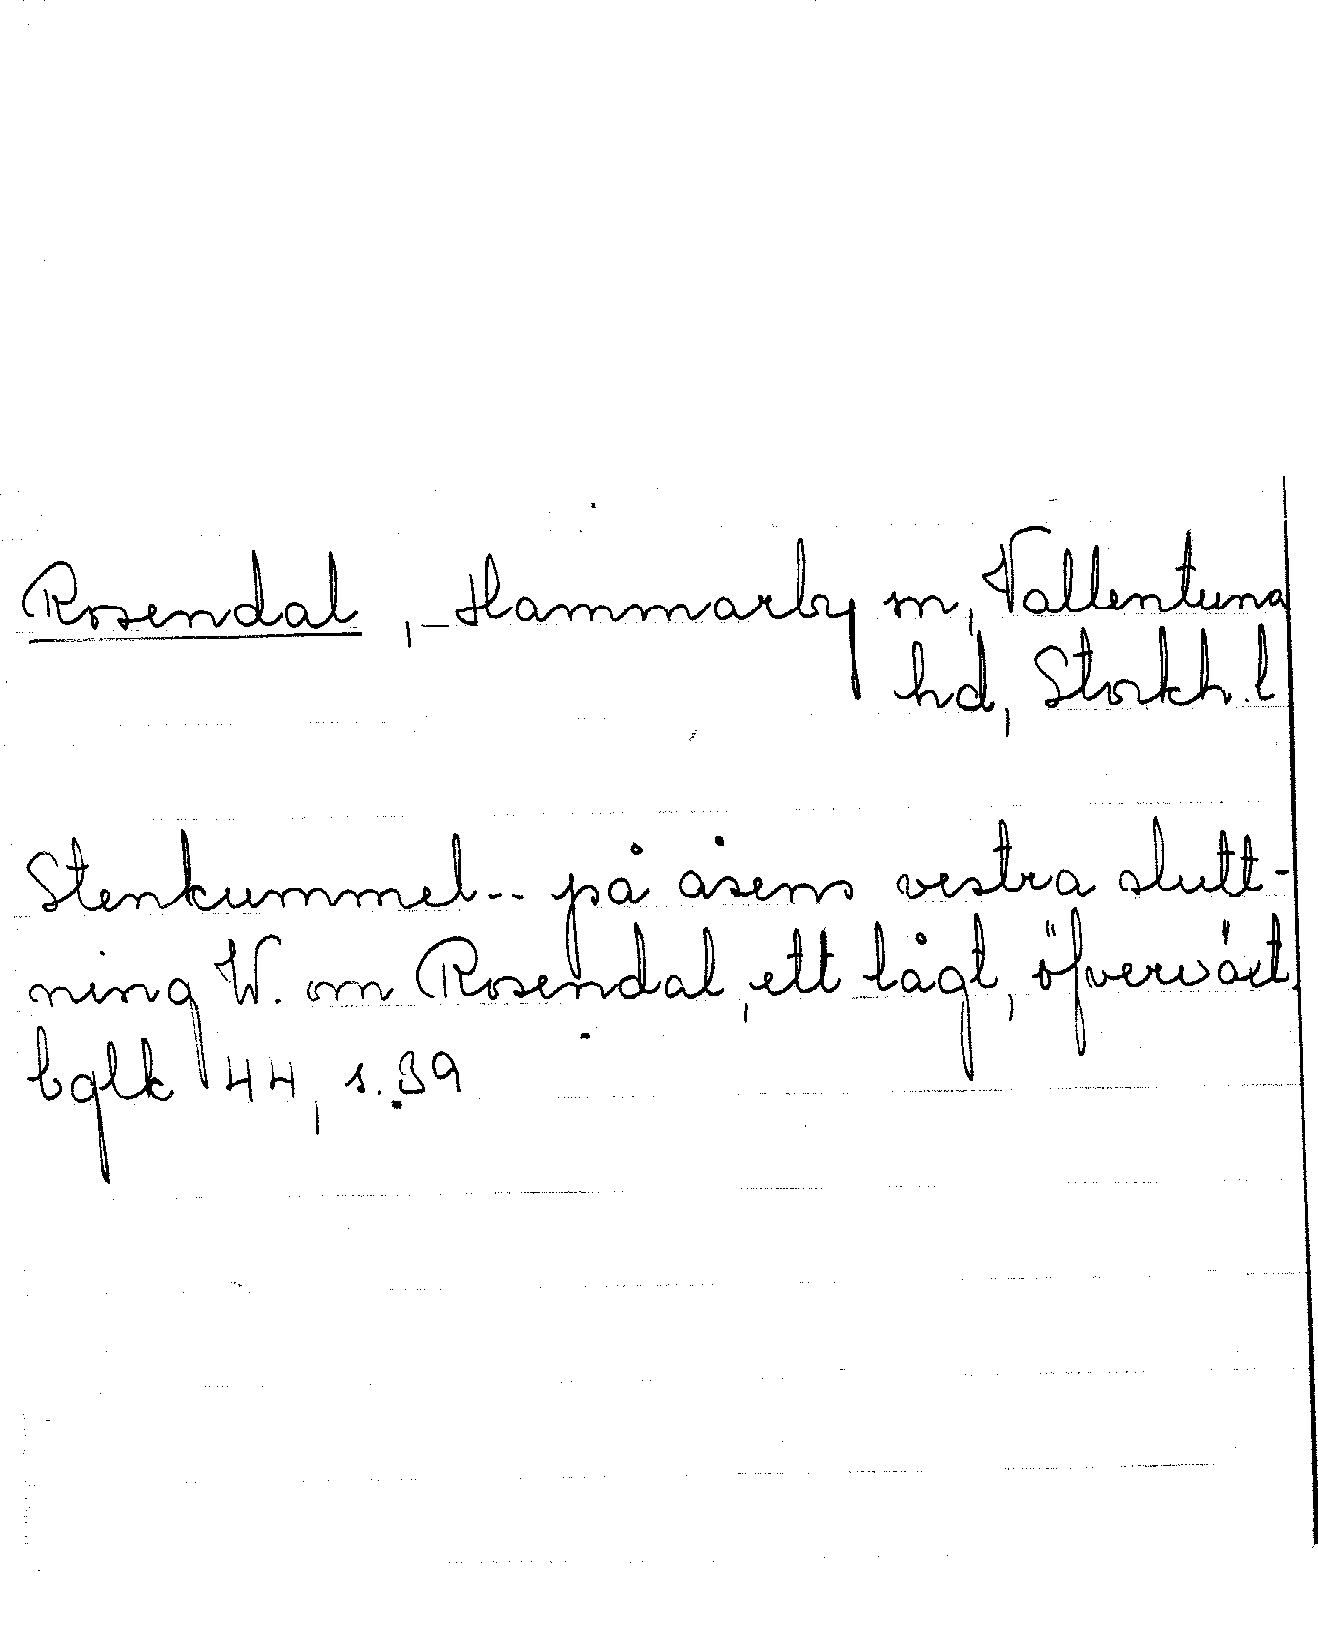 Rosendal, Hammarby sn, Vallentuna
hd, Stockh. l
Stenkummel -- på åsens vestra slutt-
ning W. om Rosendal, ett lågt, öfverväxt.
bglk 44, s. 39